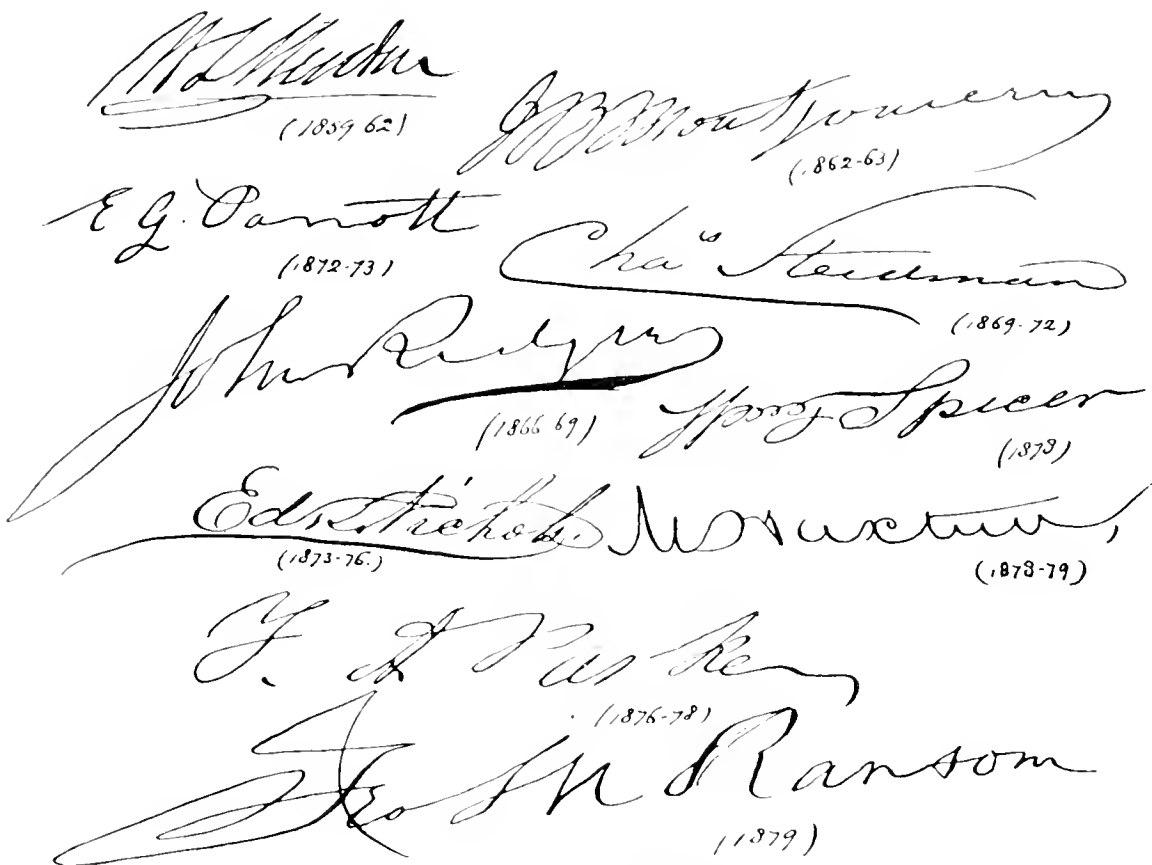 W L Hudson
(1859-62)
J B Montgomery
(1862-63)
E G. Parrott
(1872-73)
Chaˢ Steedman
(1869-72)
John Rodgers
(1866-69)
Spicer
(1878)
Ed. T. Nichols.
(1873-76.)
(1878-79)
F. A Parker
(1876-78)
Geo M Ransom
(1879)